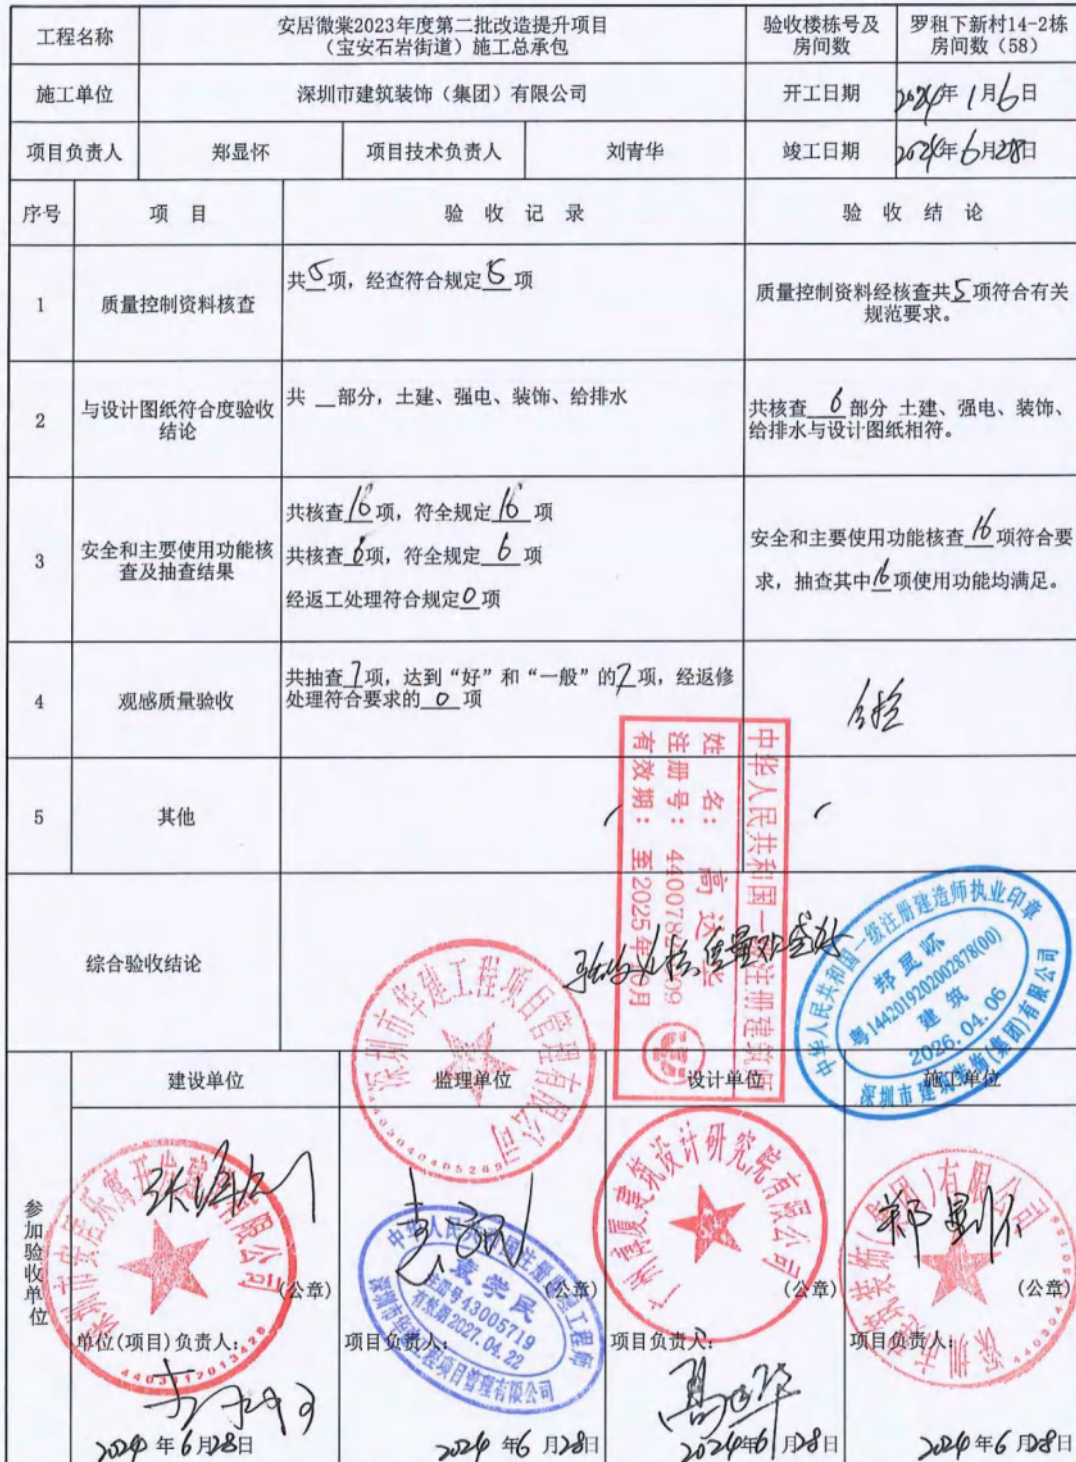 工程名称
安居微棠2023年度第二批改造提升项目
（宝安石岩街道）施工总承包
验收楼栋号及
房间数
罗租下新村14-2栋
房间数（58）
施工单位
深圳市建筑装饰（集团）有限公司
开工日期
2024年1月6日
项目负责人
郑显怀
项目技术负责人
刘青华
竣工日期
2024年6月28日
序号
项 目
验 收 记 录
验 收 结 论
1
质量控制资料核查
共5项，经查符合规定5项
质量控制资料经核查共5项符合有关
规范要求。
2
与设计图纸符合度验收
结论
共 __部分，土建、强电、装饰、给排水
共核查 6 部分 土建、强电、装饰、
给排水与设计图纸相符。
3
安全和主要使用功能核
查及抽查结果
共核查16项，符全规定16项
共核查6项，符全规定 6 项
经返工处理符合规定0项
安全和主要使用功能核查16项符合要
求，抽查其中16项使用功能均满足。
4
观感质量验收
共抽查7项，达到“好”和“一般”的7项，经返修
处理符合要求的 0 项
合格
5
其他
中华人民共和国一级注册建筑师
姓 名： 高达华
注册号：
有效期： 至2025年10月
综合验收结论
中华人民共和国一级注册建造师执业印章
郑显怀
粤1442019202002878(00)
建筑
2026.04.06
深圳市建筑装饰(集团)有限公司
深圳市华建工程项目管理有限公司
参加验收单位
建设单位
监理单位
设计单位
施工单位
(公章)
(公章)
(公章)
(公章)
中华人民共和国注册监理工程师
袁学民
注册号43005719
有效期2027.04.22
深圳市华建工程项目管理有限公司
建筑设计研究院有限公司
郑显怀
单位(项目)负责人：
项目负责人：
项目负责人：
项目负责人：
高达华
2024 年 6 月 28日
2024 年6 月28日
2024年6 月28日
2024 年 6 月28日